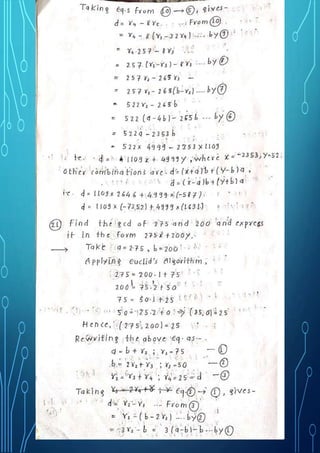 Taking Eq.s from ⑩ → ⑤, gives-
d = r₄ - 8 r₅ .... From ⑩.
= r₄ - 8 (r₃ - 32 r₄) ..... by ⑨
= r₄ 257 - 8 r₃
= 257 (r₂ - r₃) - 8 r₃ .... by ⑧
= 257 r₂ - 265 r₃ -
= 257 r₂ - 265 (b - r₂) .... by ⑦
= 522 r₂ - 265 b
= 522 (a - 4b) - 265 b ... by ⑥
= 522a - 2353 b
= 522 x 4999 - 2353 x 1109
ie. d = 1109 x + 4999 y, where x = -2353, y = 52.
Other combinations are: d = (x+a)b + (y-b)a,
d = (x-a)b + (y+b)a
ie. d = 1109 x 2646 + 4999 x (-587).
d = 1109 x (-7352) + 4999 x (1631)
㉑ Find the gcd of 275 and 200 and express
it in the form 275x + 200y.
→ Take a = 275, b = 200
Applying Euclid's Algorithm,
275 = 200·1 + 75
200 = 75·2 + 50
75 = 50·1 + 25
50 = 25·2 + 0
Hence, (275, 200) = 25
Rewriting the above Eq. as -
a = b + r₂ ; r₂ = 75 — ①
b = 2r₂ + r₃ ; r₃ = 50 — ②
r₂ = r₃ + r₄ ; r₄ = 25 = d — ③
Taking Eq. ③ → ①, gives-
d = r₂ - r₃ ... From ③
= r₂ - (b - 2r₂) ... by ②
= 3r₂ - b = 3(a-b) - b ... by ①